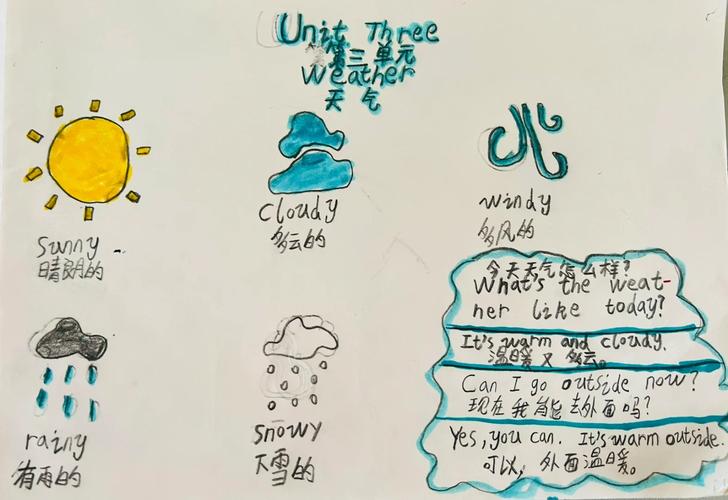 Unit Three
第三单元
Weather
天气
sunny
晴朗的
cloudy
多云的
windy
多风的
rainy
有雨的
snowy
下雪的
今天天气怎么样?
What's the weat-
her like today?
It's warm and cloudy.
温暖又多云。
Can I go outside now?
现在我能去外面吗?
Yes, you can. It's warm outside.
可以，外面温暖。